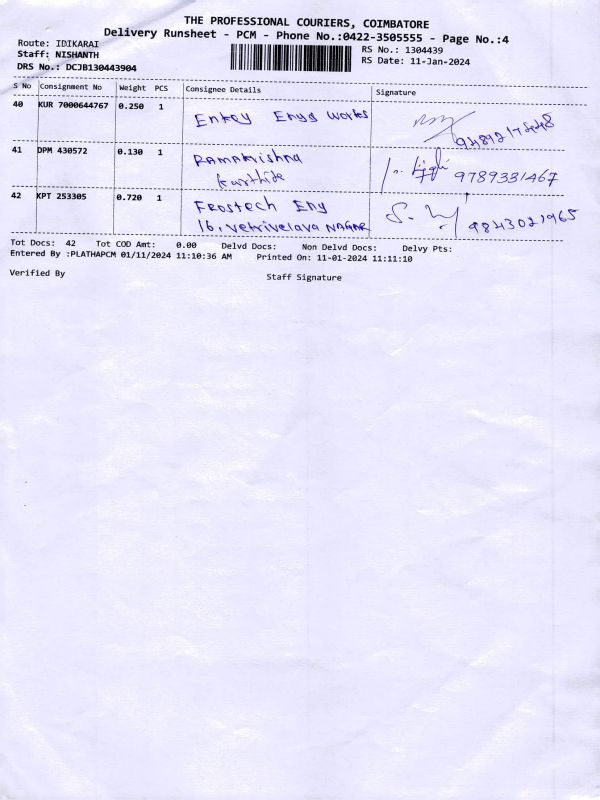 THE PROFESSIONAL COURIERS, COIMBATORE
Delivery Runsheet - PCM - Phone No.:0422-3505555 - Page No.:4
Route: IDIKARAI
RS No.: 1304439
Staff: NISHANTH
RS Date: 11-Jan-2024
DRS No.: DCJB130443904
S No Consignment No Weight PCS Consignee Details Signature
40 KUR 7000644767 0.250 1 Enkey Engg Works
41 DPM 430572 0.130 1 Ramakrishna 9789331467
42 KPT 253305 0.720 1 Frostech Eng
16, Vetrivelava NAGAR 9843021965
Tot Docs: 42 Tot COD Amt: 0.00 Delvd Docs: Non Delvd Docs: Delvy Pts:
Entered By :PLATHAPCM 01/11/2024 11:10:36 AM Printed On: 11-01-2024 11:11:10
Verified By Staff Signature